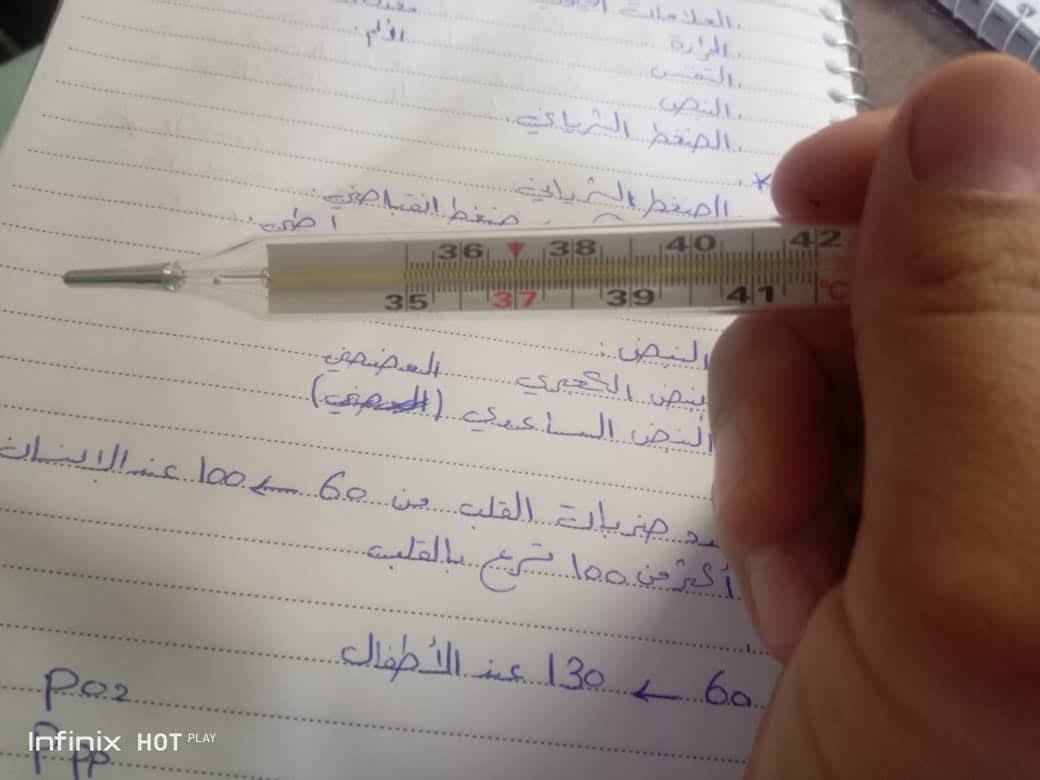 العلامات
الحرارة
الألم
التنفس
النبض
الضغط الشرياني
* الضغط الشرياني
ضغط انقباضي
36 38 40 42
35 37 39 41 °C
النبض :
نبض الكعبري
النبض الساعدي
عدد ضربات القلب من 60 ← 100 عند الإنسان
أكثر من 100 تسرع بالقلب
60 ← 130 عند الأطفال
PO2
Infinix HOT PLAY